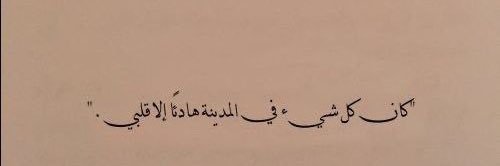 "كان كل شيء في المدينة هادئًا إلا قلبي ."